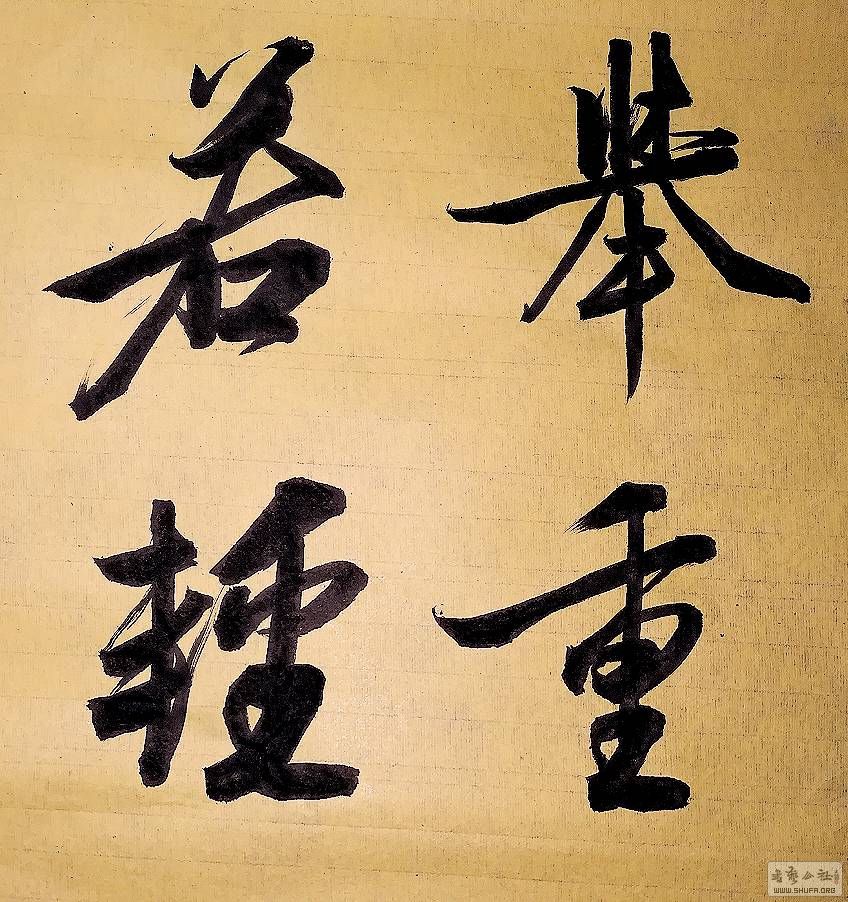 舉重
若輕
書藝公社
WWW.SHUFA.ORG